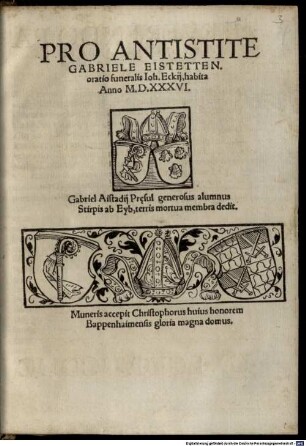 PRO ANTISTITE
GABRIELE EISTETTEN.
oratio funeralis Ioh. Eckij, habita
Anno M.D.XXXVI.
Gabriel Aistadij Pręsul generosus alumnus
Stirpis ab Eyb, terris mortua membra dedit.
Muneris accepit Christophorus huius honorem
Bappenhaimensis gloria magna domus.